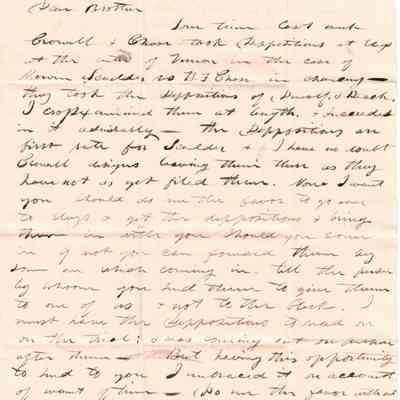 Dear Brother
Some time last week
Crowell & Chase took Depositions at
at the of Vernon in the case of
Scudder vs B F Chase in chancery –
they took the Depositions of & Beck.
I crossexamined them at length. & succeeded
in it admirably – the Depositions are
first rate for Scudder & I have no doubt
Crowell designs leaving them there as they
have not as yet filed them. Now I want
you should do me the favor to go over
to & get the depositions & bring
them in with you should you come
in if not you can forward them by
some one else coming in. tell the person
by whom you send them to give them
to one of us & not to the Clerk. I
must have the Depositions to read on
on the trial: I was going out on purpose
after them – But having this opportunity
to send to you I embraced it on account
of want of time – (Do me this favor without